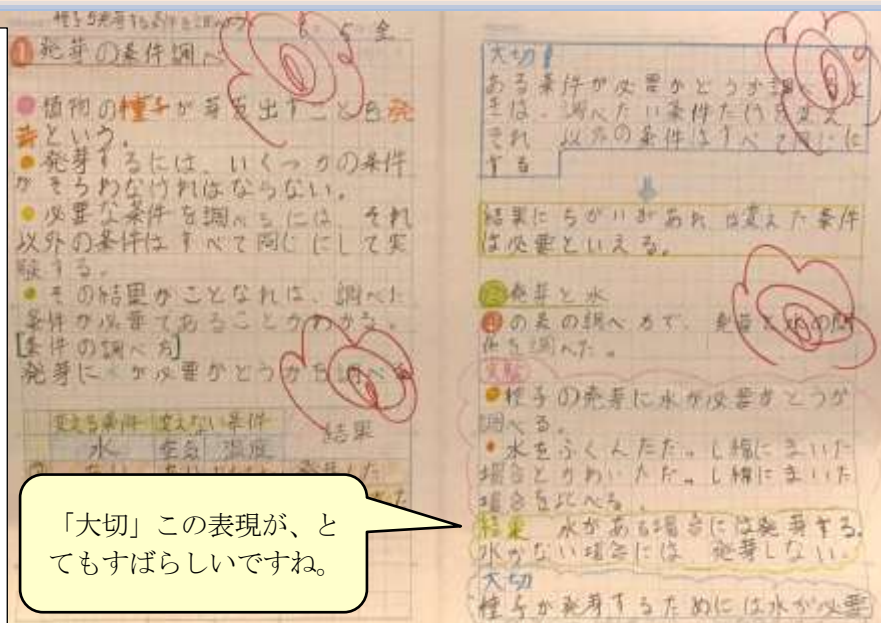 種子の発芽する条件を調べよう
6. 5 金
①発芽の条件調べ
●植物の種子が芽を出すことを発
芽という。
●発芽するには、いくつかの条件
がそろわなければならない。
●必要な条件を調べるには、それ
以外の条件はすべて同じにして実
験する。
●その結果がことなれば、調べた
条件が必要であることがわかる。
【条件の調べ方】
発芽に水が必要かどうかを調べる
変える条件 変えない条件
結果
水 空気 温度
大切！
ある条件が必要かどうか調べると
きは、調べたい条件だけを変え、
それ以外の条件はすべて同じに
する
結果にちがいがあれば変えた条件
は必要といえる。
②発芽と水
の表の調べ方で、発芽と水の関
係を調べた。
実験
●種子の発芽に水が必要かどうか
調べる。
●水をふくんだだっし綿にまいた
場合とかわいただっし綿にまいた
場合を比べる。
結果 水がある場合には発芽する。
水がない場合には 発芽しない。
大切
種子が発芽するためには水が必要
「大切」この表現が、と
てもすばらしいですね。